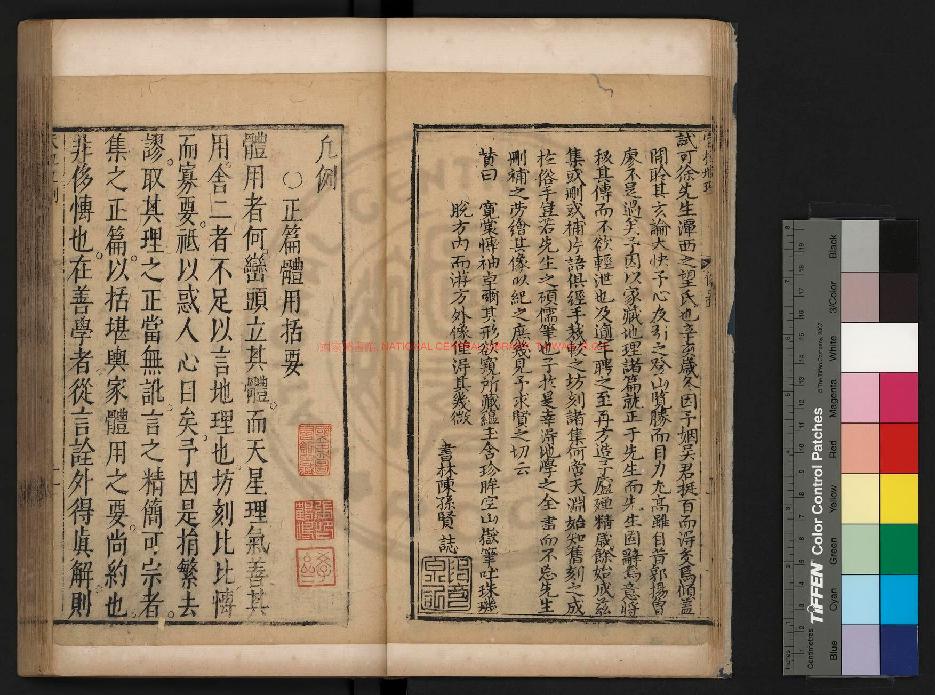 試可徐先生潭西之望氏也辛亥歲冬因予姻吳君挺百而得交焉傾蓋
間聆其玄論大快予心及引之登山覽勝而目力尤高雖自昔郭楊曾
廖不是過矣予因以家藏地理諸篇就正于先生而先生固辭焉意將
秘其傳而不欲輕泄也及適年聘之至再方造予廬殫精歲餘始成茲
集或刪或補片語俱經手裁較之坊刻諸集何啻天淵始知舊刻之成
於俗手豈若先生之碩儒筆也予於是幸得地學之全書而不忘先生
刪補之勞繪其像以紀之庶幾見予求賢之切云
賛曰 寬裳慱袖卓爾其形欲窺所藏蘊玉含珍眸空山嶽筆吐珠璣
脫方內而游方外像僅得其幾微
書林陳孫賢 誌
凡例
○正篇體用括要
體用者何巒頭立其體而天星理氣善其
用舍二者不足以言地理也坊刻比比慱
而寡要祗以惑人心目矣予因是捐繁去
謬取其理之正當無訛言之精簡可宗者
集之正篇以括堪輿家體用之要尚約也
非侈慱也在善學者從言詮外得眞解則
國家圖書館, NATIONAL CENTRAL LIBRARY, TAIWAN, R.O.C.
TIFFEN Color Control Patches
© The Tiffen Company, 2007
Centimetres
Inches
Blue
Cyan
Green
Yellow
Red
Magenta
White
3/Color
Black